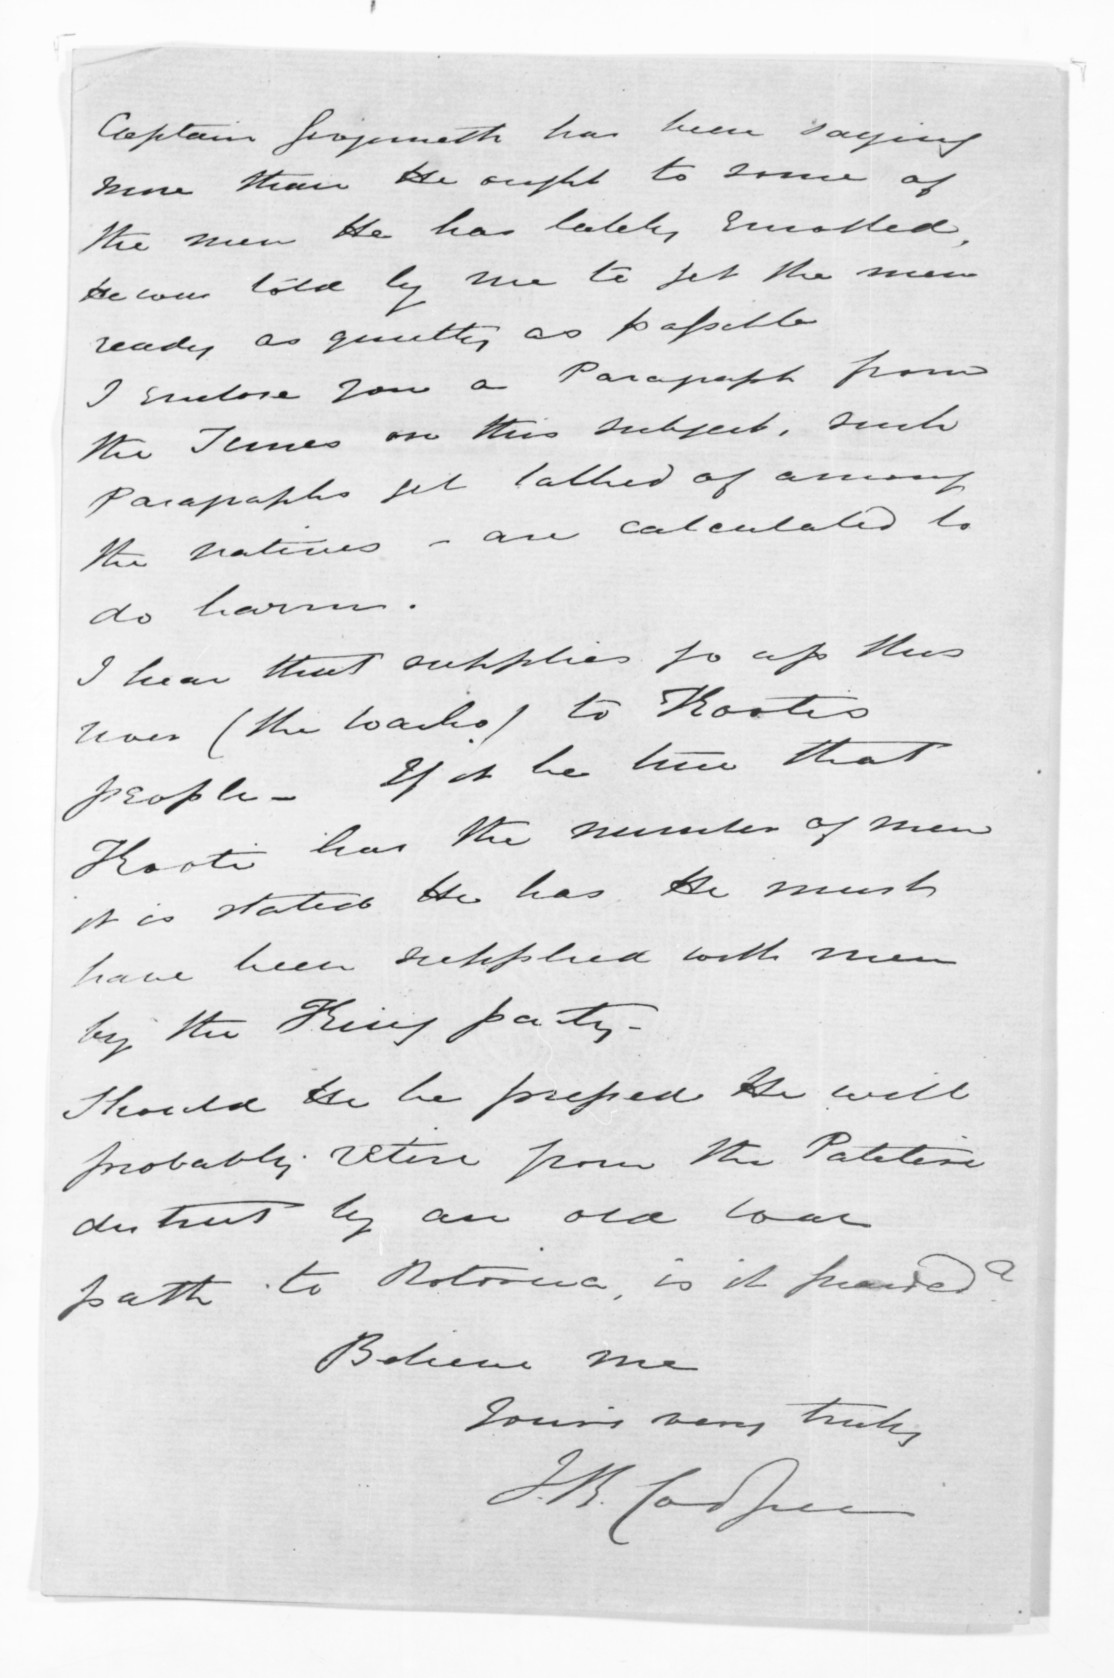 Captain has been saying
more than He ought to some of
the men He has lately Enrolled,
He was told by me to get the men
ready as quietly as possible
I Enclose you a Paragraph from
the Times on this subject, such
Paragraphs get talked of among
the natives - are calculated to
do harm.
I hear that supplies go up this
river (the Waiho) to Kooti's
people - If it be true that
Kooti has the number of men
it is stated He has He must
have been supplied with men
by the King party -
Should He be pressed He will
probably retire from the Patetere
district by an old war
path to Rotorua, is it guarded?
Believe me
Yours very truly
J.B.